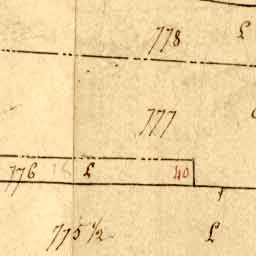 778 £
777
776 £ 40
775 1/2 £